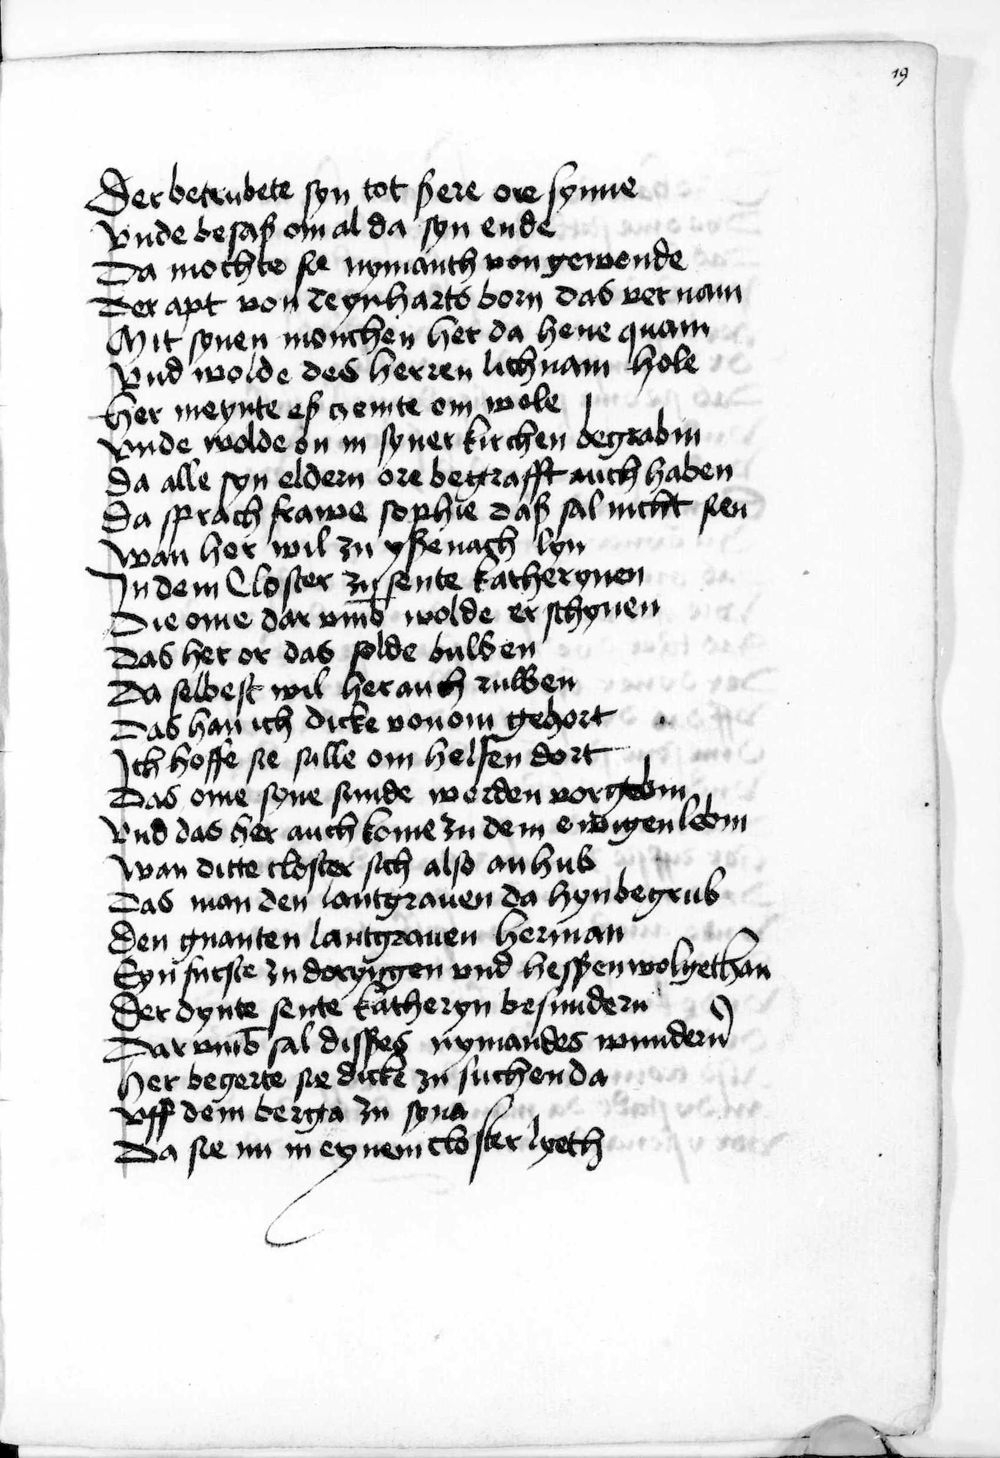 19
Der betrubete syn tot ßere ore synne
Vnde besaß om al da syn ende
Da mochte sie nymanth von gewende
Der apt von Reynharts born das vernam
Mit synen monchen her da hene quam
Vnd wolde des herren lichnam hole
Her meynte eß czemte om wole
Vnde wolde on in syner kirchen begrabin
Da alle syn eldern ore begrafft auch haben
Da sprach frawe sophie daß sal nicht sien
Wan her wil zu yßenach lyn
In dem Closter zu sente katherynen
Die ome dar vmb wolde erschynen
Das her or das solde buwen
Da selbest wil her auch ruwen
Das han ich dicke von om gehort
Ich hoffe sie sulle om helfen dort
Das ome syne sunde werden vorgebin
Vnd das her auch kome zu dem ewigen lebin
Wan ditte closter sich also an hub
Das man den lantgrauen da hyn begrub
Den gnanten lantgrauen herman
Eyn furste zu doryngen vnd hessen wolgethan
Der dynte sente katheryn besundern
Dar vmb sal disses nymandes wundern
Her begerte sie dicke zu suchen da
Vff dem berga zu syna
Da sie nu in eynem closter lyeth